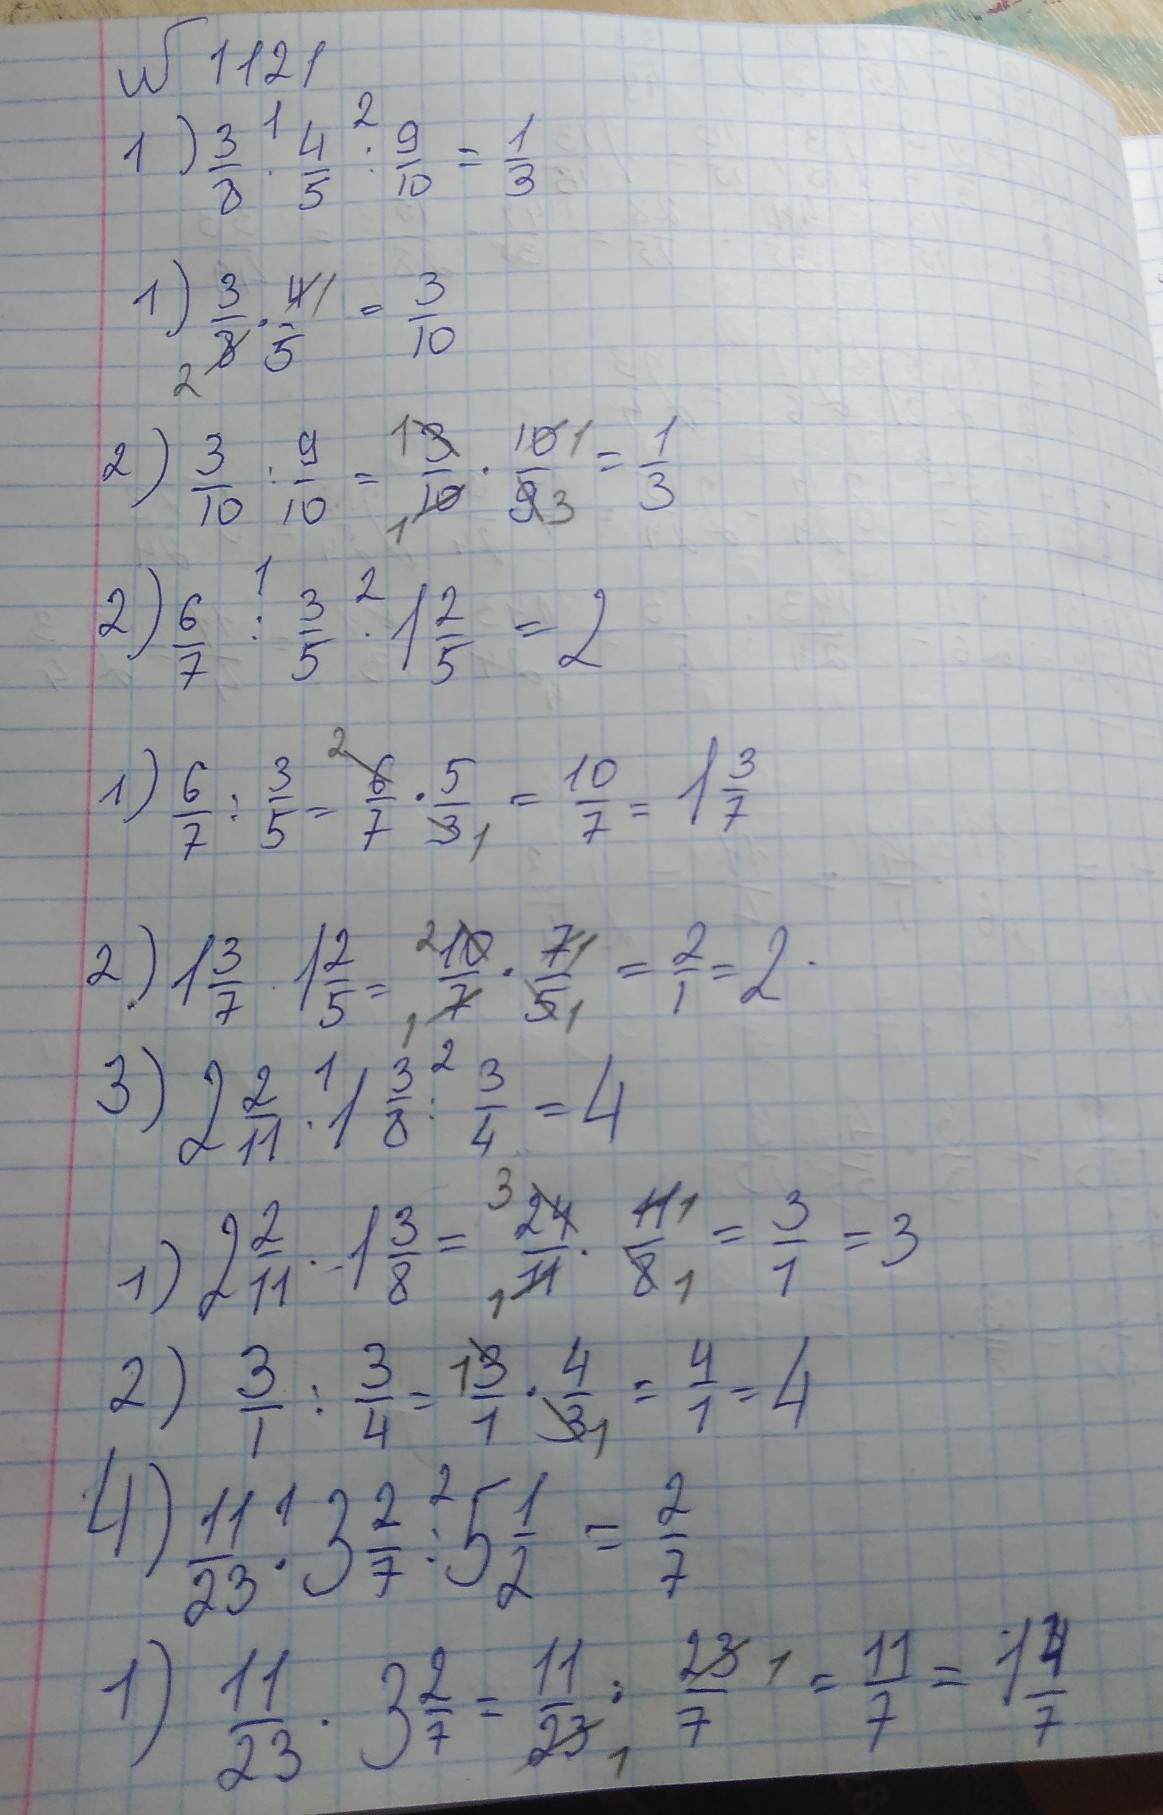 № 1121
1) 3/8 ·¹ 4/5 :² 9/10 = 1/3
1) 3/8 · 4/5 = 3/10
2) 3/10 : 9/10 = 3/10 · 10/9 = 1/3
2) 6/7 :¹ 3/5 ·² 1 2/5 = 2
1) 6/7 : 3/5 = 6/7 · 5/3 = 10/7 = 1 3/7
2) 1 3/7 · 1 2/5 = 10/7 · 7/5 = 2/1 = 2
3) 2 2/11 ·¹ 1 3/8 :² 3/4 = 4
1) 2 2/11 · 1 3/8 = 24/11 · 11/8 = 3/1 = 3
2) 3/1 : 3/4 = 3/1 · 4/3 = 4/1 = 4
4) 11/23 ·¹ 3 2/7 :² 5 1/2 = 2/7
1) 11/23 · 3 2/7 = 11/23 : 23/7 = 11/7 = 1 4/7